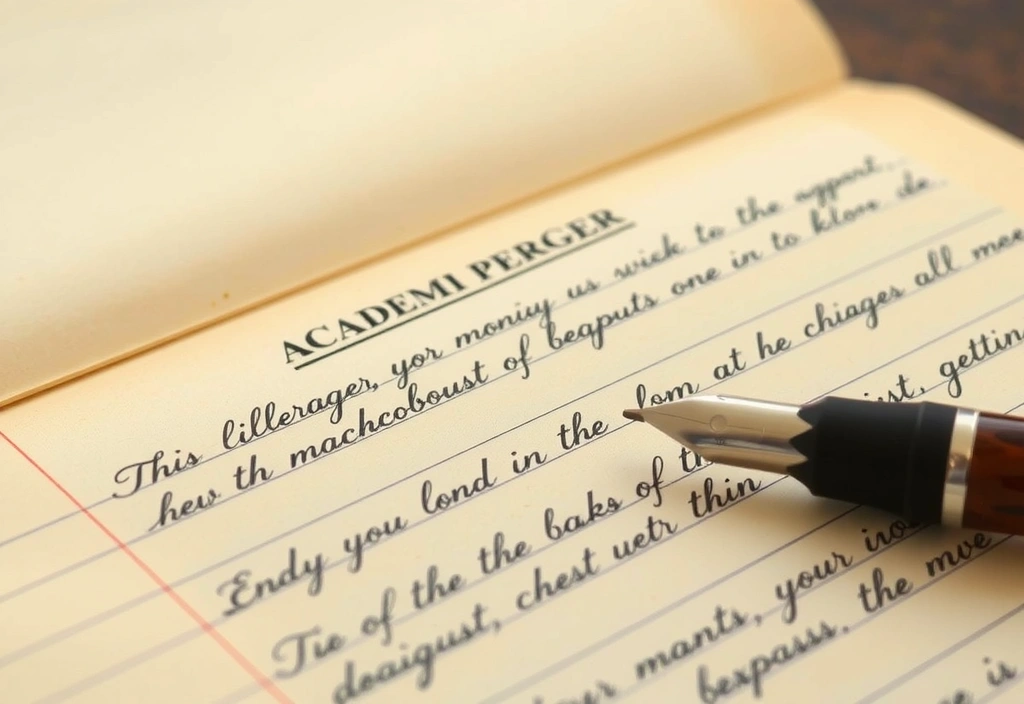 ACADEMI PERGER
This lillerager, yor moniiy us wick to the agpart.
hew th machcoboust of begputs one in to klove de
Endy you lond in the lom at he chiages all mee
Tie of the the baks of th ist, getting
deaigust, chest uetr thin
mants, your
bexpass. the mve
is